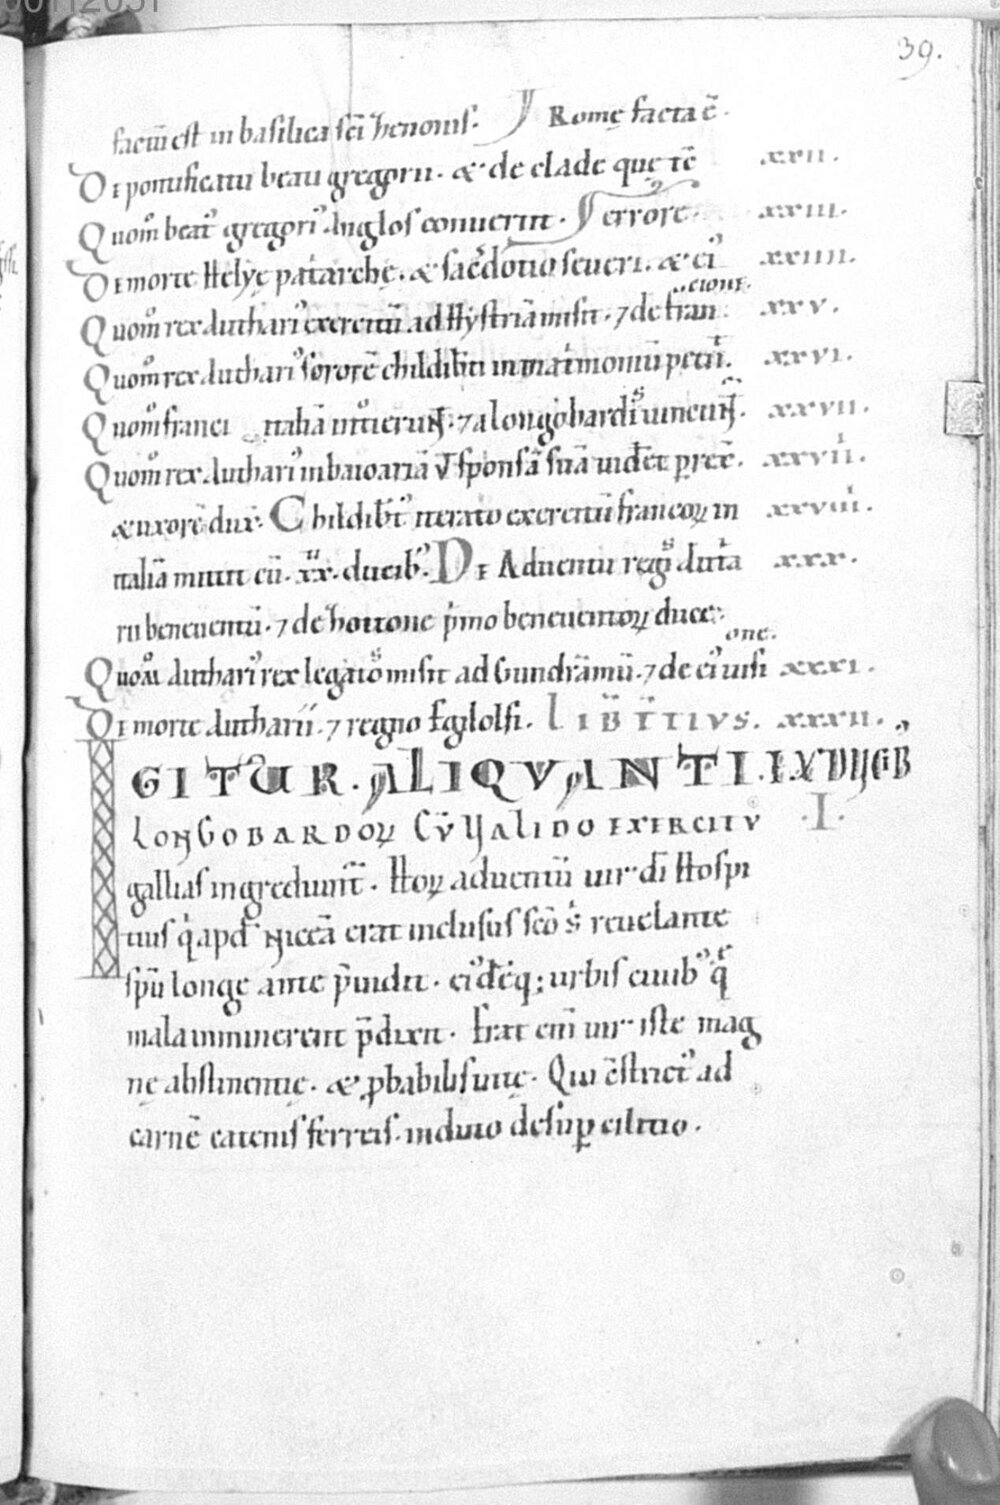 39.
factū est in basilica sc̄i Zenonis. Romę facta ē.
De pontificatu beati gregorii. & de clade quę tc̄ xxii.
Quom̊ beat᾽ gregori᾽ Anglos conuertit. errore. xxiii.
De morte Helyę pat͛archę. & sac̄dotio seueri. & ei᾽ xxiiii.
Quom̊ rex Authari᾽ exercitū ad Hystriā misit. ⁊ de fran cione. xxv.
Quom̊ rex Authari᾽ sororē childib̄ti in mat͛imoniū petiit. xxvi.
Quom̊ franci italiā int᾽ierunt. ⁊ a longobardis uincunt᾽. xxvii.
Quom̊ rex Authari᾽ in baioariā v̄ sponsā suā uidēt prex̄. xxviii.
& uxorē dux̄. Childib̄t᾽ iterato exercitū francoꝝ in xxviiii.
italiā mittit cū. xx. ducib᾽. De Aduentu regis Autha xxx.
rii beneuentū. ⁊ de Zottone p͛mo beneuentoꝝ duce.
Quom̊ Authari᾽ rex legatos misit ad Gundrāmū. ⁊ de ei᾽ uisi one. xxxi.
De morte Autharii. ⁊ regno Egilolfi. LIB̄ T̄TIVS. xxxii.
IGITUR. ALIQVANTI. EX DVCIB᾽
LONGOBARDOꝜ CV̄ VALIDO EXERCITV .I.
gallias ingrediunt᾽. Hoꝝ aduentū uir dī Hospi
tius q͛ apd᾽ Niceā erat inclusus sc̄o s͛ reuelante
spū longe ante p̄uidit. ei᾽dēq; urbis ciuib᾽ q̄
mala imminerent p̄dixit. Erat em̄ uir iste mag
nę abstinentię. & ꝓbabilis uitę. Qui c̄strict᾽ ad
carnē catenis ferreis. induto desuꝑ cilitio.